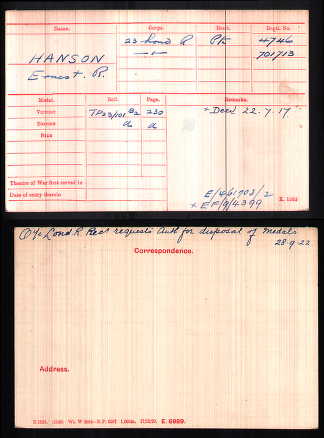 Name. Corps. Rank. Regtl. No.
HANSON 23 Lond R Pte 4746
Ernest. R. —"— 701713
Medal. Roll. Page. Remarks.
Victory TP23/101 B2 230 Decd 22.7.17.
British do do
Star
Theatre of War first served in
Date of entry therein
E/4/61703/2
x EF/8/4399 K. 1380
O i/c Lond R. Recs requests Auth for disposal of medals
28.9.22
Correspondence.
Address.
E. 6989.